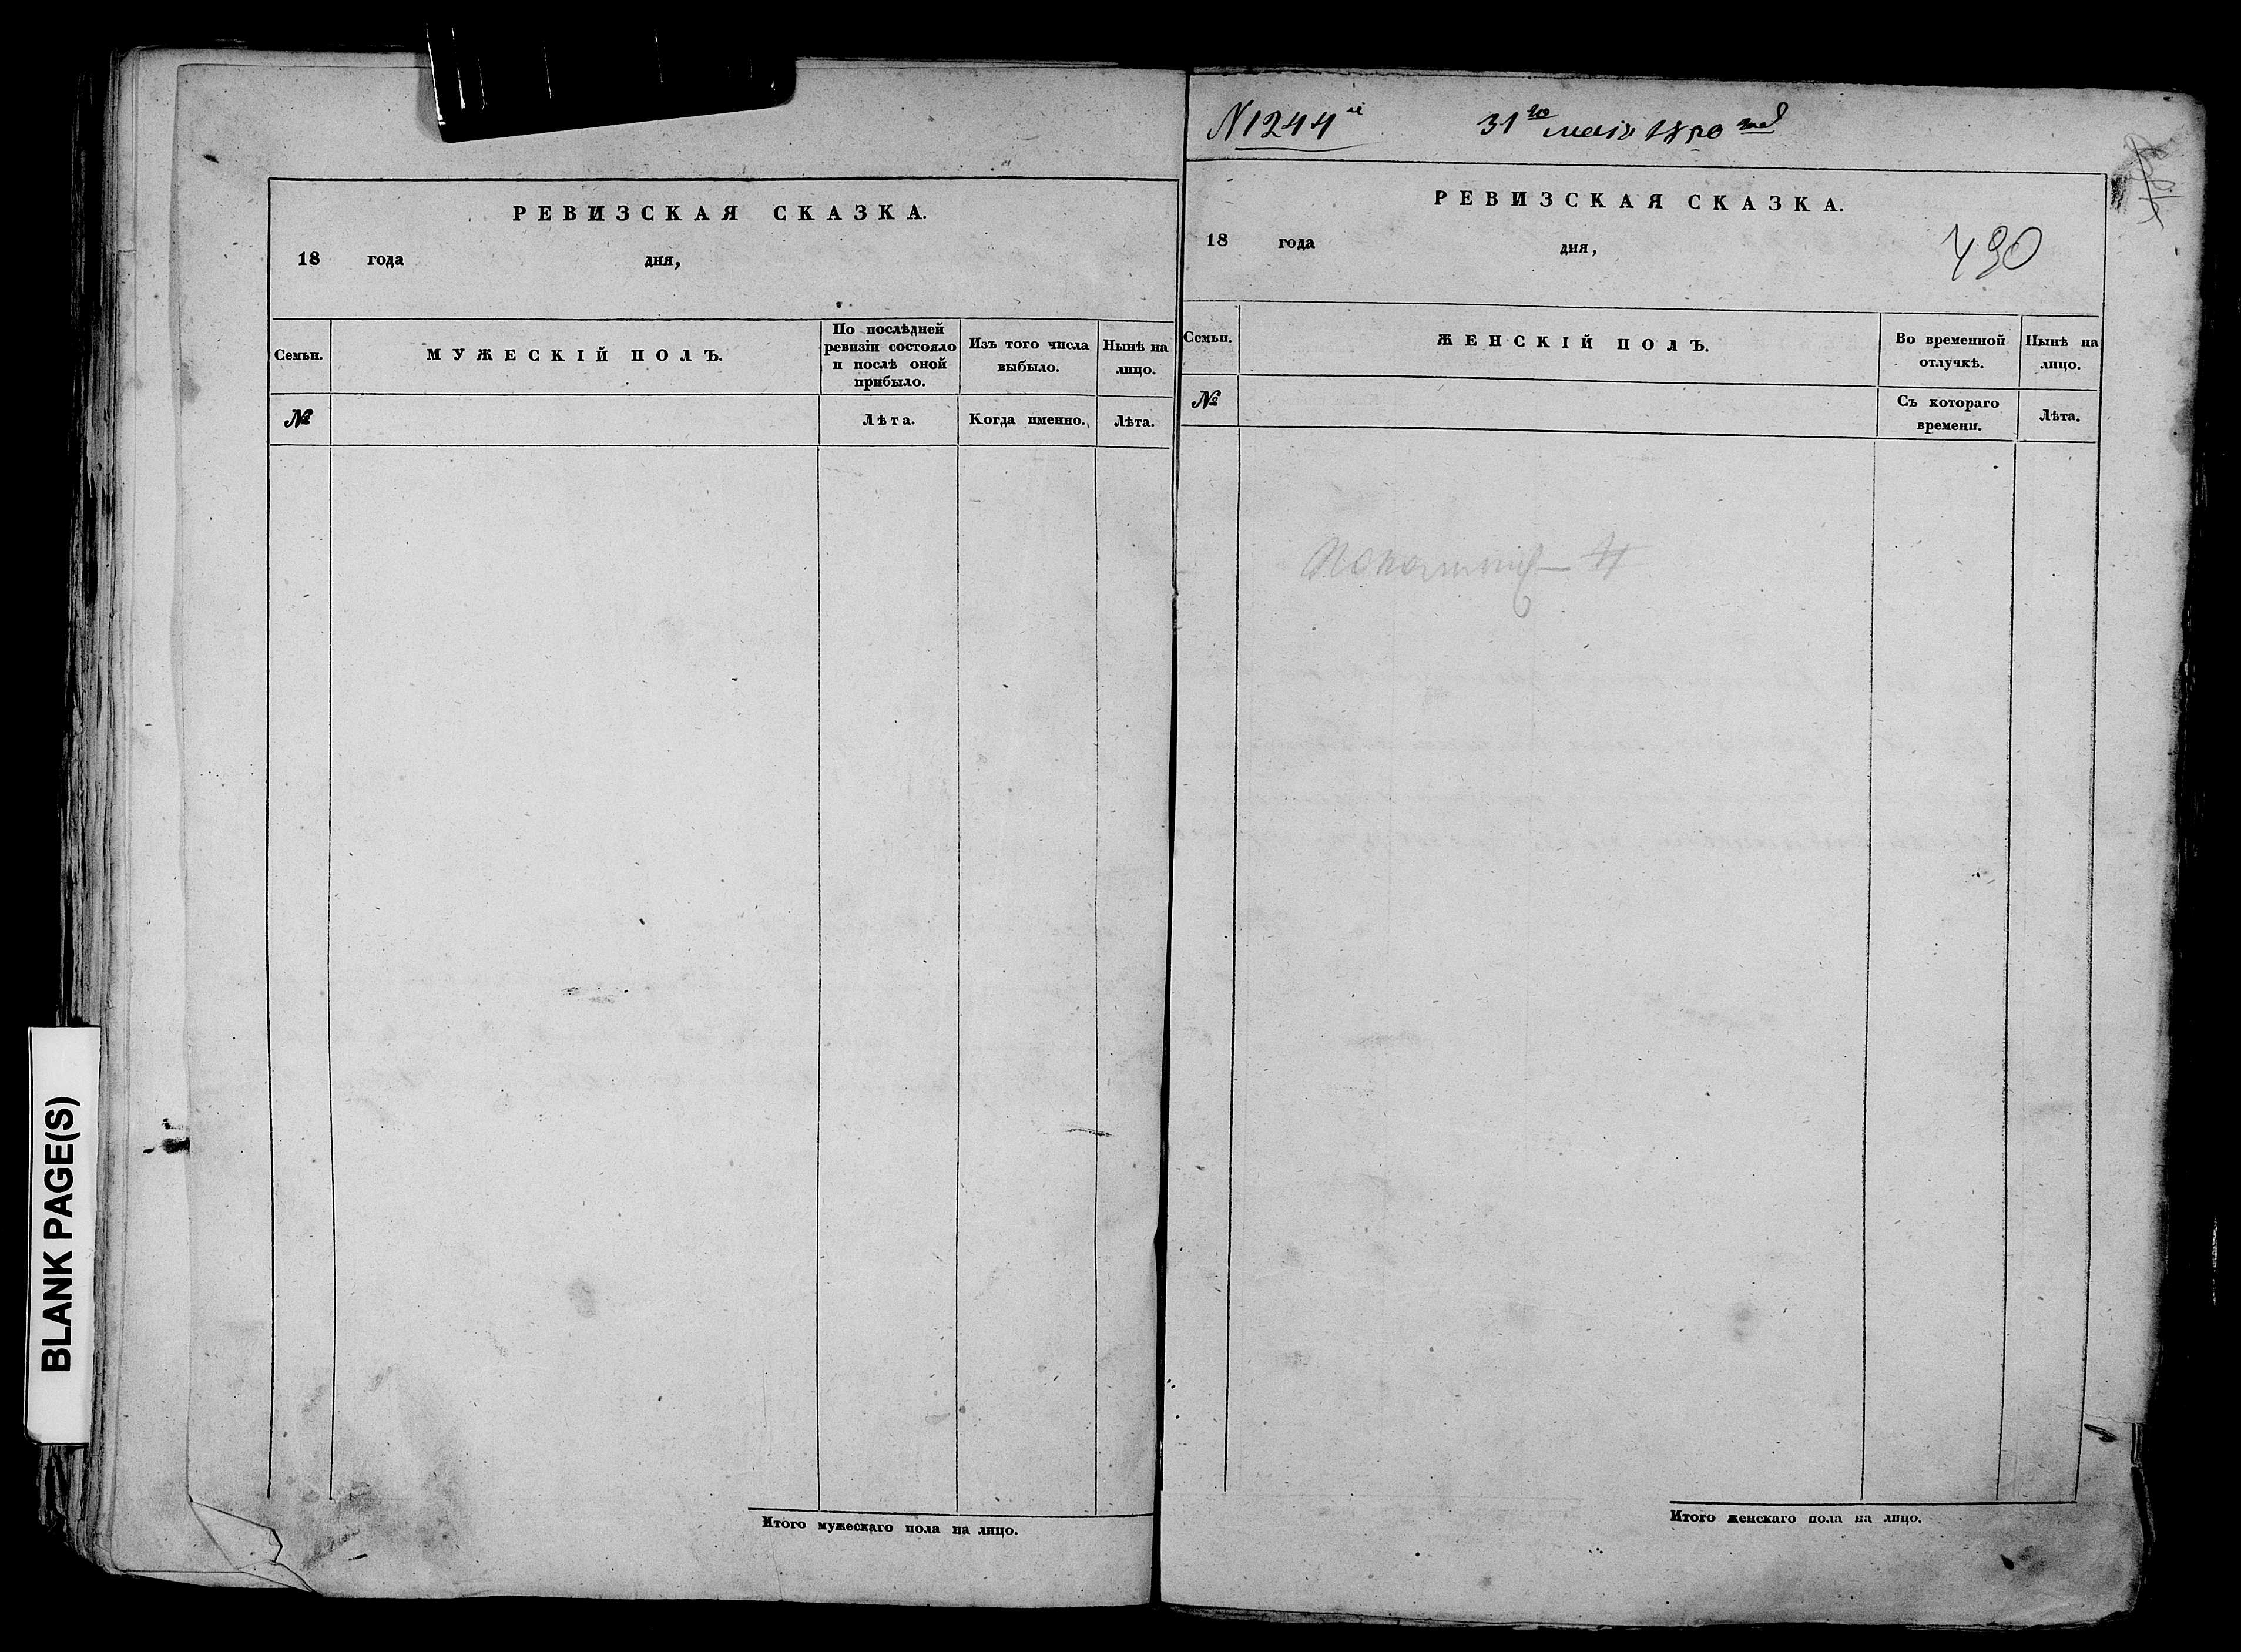 РЕВИЗСКАЯ СКАЗКА.
18 года дня,
Семьи.
МУЖЕСКІЙ ПОЛЪ.
По послѣдней
ревизіи состояло
и послѣ оной
прибыло.
Изъ того числа
выбыло.
Нынѣ на
лицо.
№
Лѣта.
Когда именно.
Лѣта.
Итого мужескаго пола на лицо.
N 1244й
31го маія 1850 год
РЕВИЗСКАЯ СКАЗКА.
18 года дня,
490
Семьи.
ЖЕНСКІЙ ПОЛЪ.
Во временной
отлучкѣ.
Нынѣ на
лицо.
№
Съ котораго
времени.
Лѣта.
Итого женскаго пола на лицо.
BLANK PAGE(S)